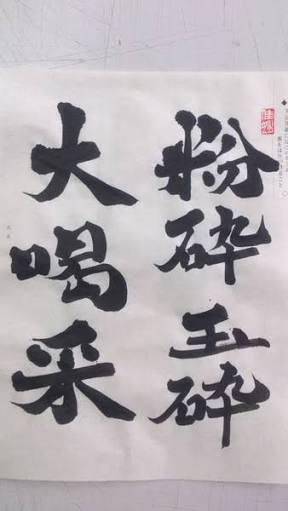 粉砕玉砕
大喝采